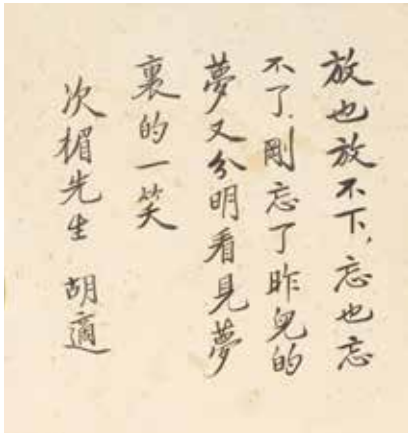 放也放不下,忘也忘
不了.剛忘了昨兒的
夢又分明看見夢
裏的一笑
次楣先生 胡適